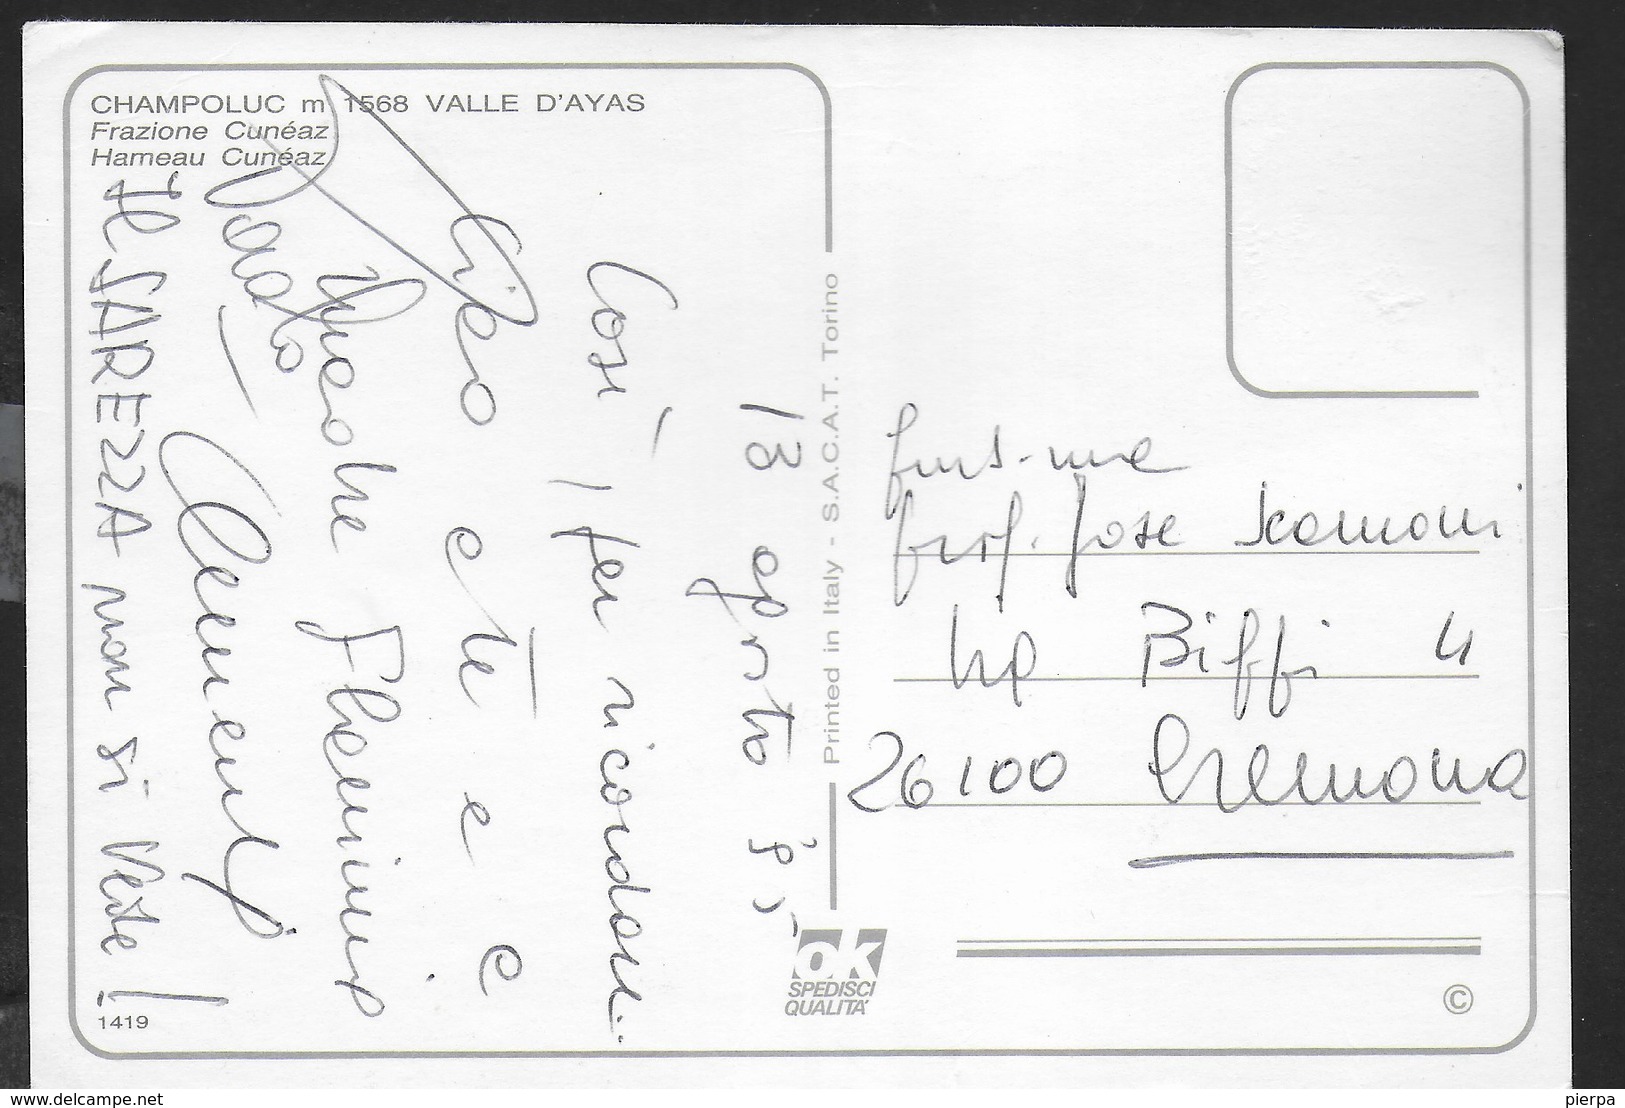 CHAMPOLUC m 1568 VALLE D'AYAS
Frazione Cunéaz
Hameau Cunéaz
13 agosto '95
Così, per ricordare..
e te e e
Paolo
Il SAREZZA non si vede!
1419
Printed in Italy - S.A.C.A.T. Torino
ok
SPEDISCI
QUALITA'
prof. Jose
Via Biffi 4
26100 Cremona
©
www.delcampe.net
pierpa